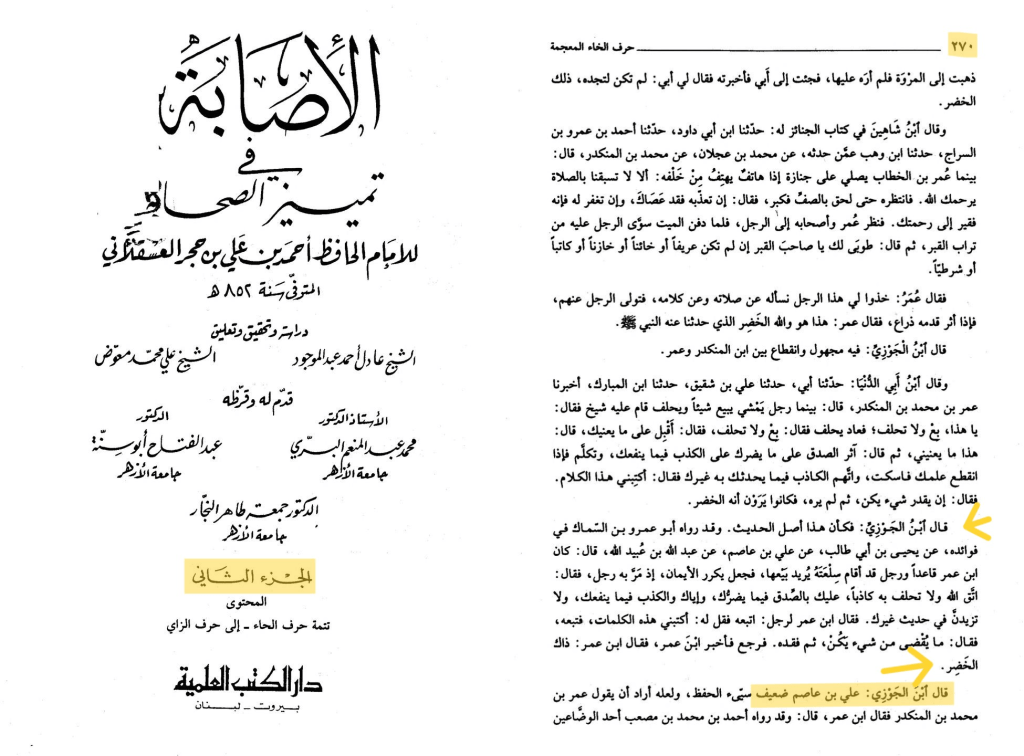 الأصابة
في
تمييز الصحابة
للإمام الحافظ أحمد بن علي بن حجر العسقلاني
المتوفى سنة ٨٥٢ هـ
دراسة وتحقيق وتعليق
الشيخ عادل أحمد عبد الموجود الشيخ علي محمد معوض
قدم له وقرظه
الأستاذ الدكتور الدكتور
محمد عبد المنعم البري عبد الفتاح أبو سنة
جامعة الأزهر جامعة الأزهر
الدكتور جمعة طاهر النجار
جامعة الأزهر
الجزء الثاني
المحتوى
تتمة حرف الحاء ـ إلى حرف الزاي
دار الكتب العلمية
بيروت ـ لبنان
٢٧٠ حرف الخاء المعجمة
ذهبت إلى المرْوَة فلم أرَه عليها، فجئت إلى أَبي فأخبرته فقال لي أبي: لم تكن لتجده، ذلك
الخضر.
وقال ٱبْنُ شَاهِينَ في كتاب الجنائز له: حدّثنا ابن أبي داود، حدّثنا أحمد بن عمرو بن
السراج، حدثنا ابن وهب عمَّن حدثه، عن محمد بن عجلان، عن محمد بن المنكدر، قال:
بينما عُمر بن الخطاب يصلي على جنازة إذا هاتفٌ يهتِفُ مِنْ خَلْفه: ألا لا تسبقنا بالصلاة
يرحمك الله. فانتظره حتى لحق بالصفّ فكبر، فقال: إن تعذّبه فقد عَصَاكَ، وإن تغفر له فإنه
فقير إلى رحمتك. فنظر عُمر وأصحابه إلى الرجل، فلما دفن الميت سوَّى الرجل عليه من
تراب القبر، ثم قال: طوبَى لك يا صاحبَ القبر إن لم تكن عريفاً أو خائناً أو خازناً أو كاتباً
أو شرطيّاً.
فقال عُمَرُ: خذوا لي هذا الرجل نسأله عن صلاته وعن كلامه، فتولى الرجل عنهم،
فإذا أثر قدمه ذراع، فقال عمر: هذا هو والله الخَضِر الذي حدثنا عنه النبي ﷺ.
قال ٱبْنُ الْجَوْزِيِّ: فيه مجهول وانقطاع بين ابن المنكدر وعمر.
وقال ٱبْنُ أَبِي الدُّنْيَا: حدّثنا أبي، حدثنا علي بن شقيق، حدثنا ابن المبارك، أخبرنا
عمر بن محمد بن المنكدر، قال: بينما رجل يَمْشي يبيع شيئاً ويحلف قام عليه شيخ فقال:
يا هذا، بِعْ ولا تحلف؛ فعاد يحلف فقال: بِعْ ولا تحلف، فقال: أَقْبِل على ما يعنيك، قال:
هذا ما يعنيني، ثم قال: آثر الصدق على ما يضرك على الكذب فيما ينفعك، وتكلَّم فإذا
انقطع علمك فاسكت، واتَّهم الكاذب فيما يحدثك به غيرك فقال: أكتبني هذا الكلام.
فقال: إن يقدر شيء يكن، ثم لم يره، فكانوا يَرَوْن أنه الخضر.
قال ٱبْنُ الجَوْزِيِّ: فكأن هذا أصل الحديث. وقد رواه أبو عمرو بن السّماك في
فوائده، عن يحيى بن أبي طالب، عن علي بن عاصم، عن عبد الله بن عُبيد الله، قال: كان
ابن عمر قاعداً ورجل قد أقام سِلْعَتَهُ يُريد بَيْعها، فجعل يكرر الأيمان، إذ مَرَّ به رجل، فقال:
اتَّق الله ولا تحلف به كاذباً، عليك بالصِّدق فيما يضرُّك، وإياك والكذب فيما ينفعك، ولا
تزيدنَّ في حديث غيرك. فقال ابن عمر لرجل: اتبعه فقل له: أكتبني هذه الكلمات، فتبعه،
فقال: ما يُقْضى من شيء يَكُنْ، ثم فقده. فرجع فأخبر ابْنَ عمر، فقال ابن عمر: ذاك
الخَضِر.
قال ٱبْنُ الجَوْزِي: علي بن عاصم ضعيف سيّىء الحفظ، ولعله أراد أن يقول عمر بن
محمد بن المنكدر فقال ابن عمر، قال: وقد رواه أحمد بن محمد بن مصعب أحد الوضاعين